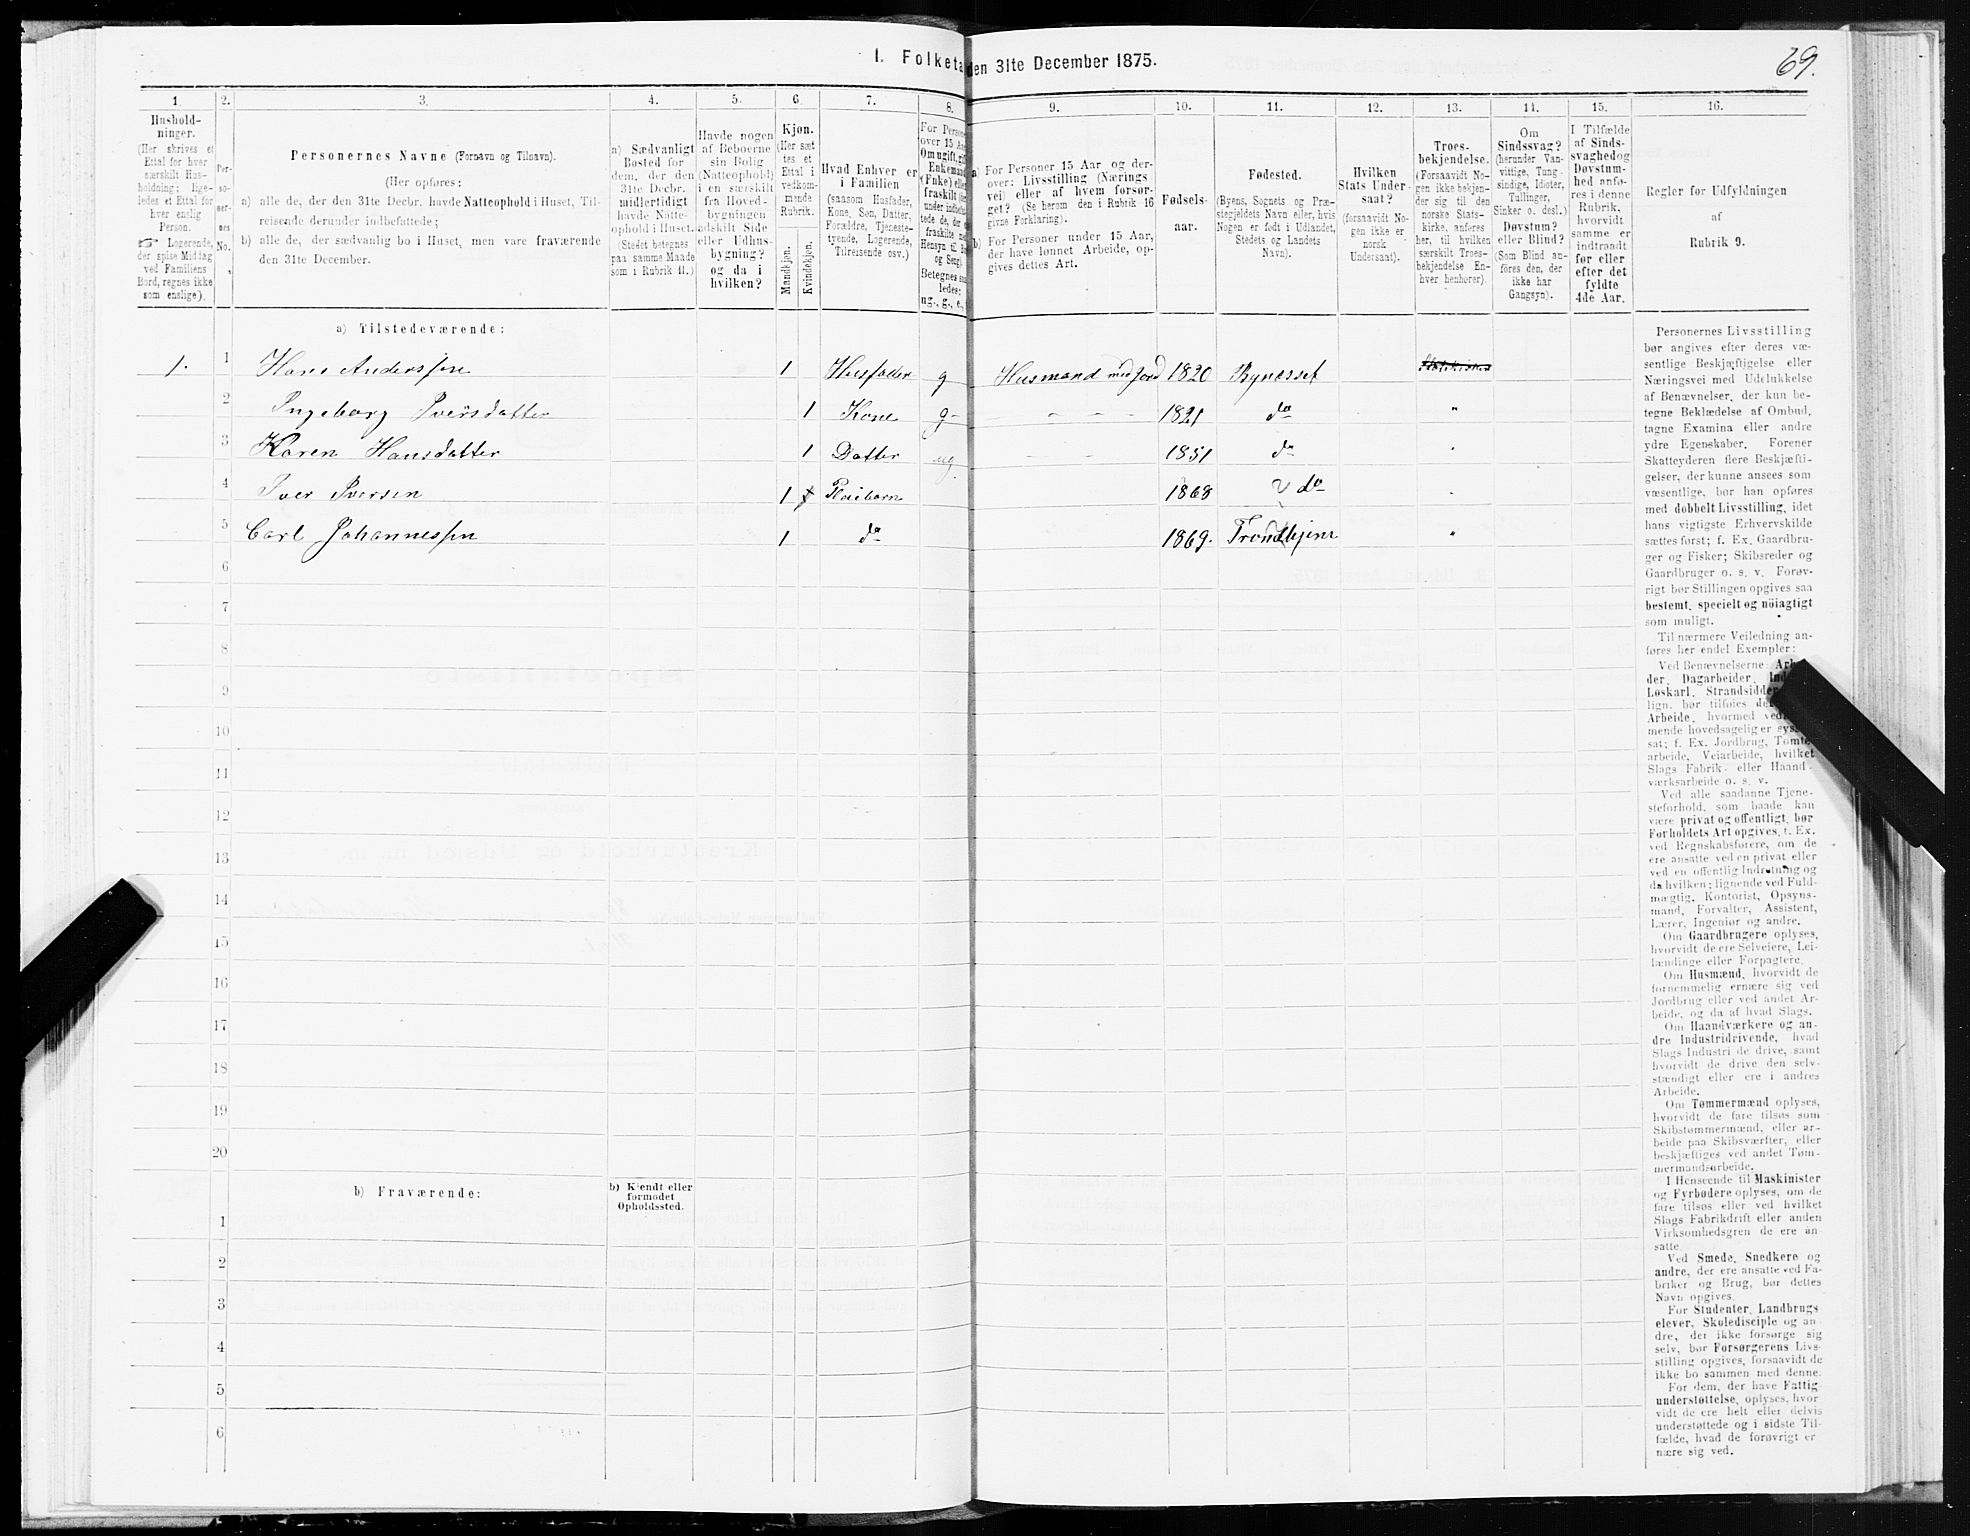 I. Folketa den 31te December 1875.
69.
1.
2.
3.
4.
5.
6.
7.
8.
9.
10.
11.
12.
13.
14.
15.
16.
Hushold-
ninger.
(Her skrives et
Ettal for hver
særskilt Hus-
holdning; lige-
ledes et Ettal for
hver enslig
Person.
☞ Logerende,
der spise Middag
ved Familiens
Bord, regnes ikke
som enslige).
Per-
so-
ner-
nes
No.
Personernes Navne (Fornavn og Tilnavn).
(Her opføres:
a) alle de, der den 31te Decbr. havde Natteophold i Huset, Til-
reisende derunder indbefattede;
b) alle de, der sædvanlig bo i Huset, men vare fraværende
den 31te December.
a) Sædvanligt
Bosted for
dem, der den
31te Decbr.
midlertidigt
havde Natte-
ophold i Huset.
(Stedet betegnes
paa samme Maade
som i Rubrik 11.)
Havde nogen
af Beboerne
sin Bolig
(Natteophold)
i en særskilt
fra Hoved-
bygningen
adskilt Side
eller Udhus-
bygning?
og da i
hvilken?
Kjøn.
(Her sæt
tes et
Ettal i
vedkom-
mende
Rubrik.
Mandkjøn.
Kvindekjøn.
Hvad Enhver er
i Familien
(saasom Husfader,
Kone, Søn, Datter,
Forældre, Tjeneste-
tyende, Logerende,
Tilreisende osv.)
For Person
over 15 Aa
Om ugift, gif
Enkemand
(Enke) elle
fraskilt (der
under indbefa
tede de, der
fraskilte me
Hensyn til Bo
og Seng).
Betegnes saa
ledes:
ug., g., e.,
a) For Personer 15 Aar og der-
over: Livsstilling (Nærings
vei) eller af hvem forsør-
get? (Se herom den i Rubrik 16
givne Forklaring).
b) For Personer under 15 Aar,
der have lønnet Arbeide, op-
gives dettes Art.
Fødsels-
aar.
Fødested.
(Byens, Sognets og Præ-
stegjeldets Navn eller, hvis
Nogen er født i Udlandet,
Stedets og Landets
Navn).
Hvilken
Stats Under-
saat?
(forsaavidt No-
gen ikke er
norsk
Undersaat).
Troes-
bekjendelse.
(Forsaavidt No-
gen ikke bekjen-
der sig til den
norske Stats-
kirke, anføres
her, til hvilken
særskilt Troes-
bekjendelse En-
hver henhører).
Om
Sindssvag?
(herunder Van-
vittige, Tung-
sindige, Idioter,
Tullinger,
Sinker o. desl.)
Døvstum?
eller Blind?
(Som Blind an-
føres den, der
ikke har
Gangsyn).
I Tilfælde
af Sinds-
svaghed og
Døvstum-
hed anfø-
res i denne
Rubrik,
hvorvidt
samme er
indtraadt
før eller
efter det
fyldte
4de Aar.
Regler for Udfyldningen
af
Rubrik 9.
a) Tilstedeværende:
1. 1 Hans Anderssen 1 Husfader g Husmand med Jord 1820 Bynesset
2 Ingeborg Iversdatter 1 Kone g - - - 1821 do "
3 Karen Hansdatter 1 Datter ug - - 1851 do "
4 Iver Iversen 1 Pleiebarn 1868 do "
5 Carl Johannessen 1 do 1869. Trondhjem "
6
7
8
9
10
11
12
13
14
15
16
17
18
19
20
b) Fraværende:
b) Kjendt eller
formodet
Opholdssted.
1
2
3
4
5
6
Personernes Livsstilling
bør angives efter deres væ-
sentlige Beskjæftigelse eller
Næringsvei med Udelukkelse
af Benævnelser, der kun be-
tegne Beklædelse af Ombud,
tagne Examina eller andre
ydre Egenskaber. Forener
Skatteyderen flere Beskjæfti-
gelser, der kunne ansees som
væsentlige, bør han opføres
med dobbelt Livsstilling, idet
hans vigtigste Erhvervskilde
sættes først; f. Ex. Gaardbru-
ger og Fisker; Skibsreder og
Gaardbruger o. s. v. Forøv-
rigt bør Stillingen opgives saa
bestemt, specielt og nöiagtigt
som muligt.
Til nærmere Veiledning an-
føres her endel Exempler:
Ved Benævnelserne: Arb
der, Dagarbeider, Ind
Løskarl, Strandsidder
lign. bør tilføies de
Arbeide, hvormed ved
mende hovedsagelig er sys
sat; f. Ex. Jordbrug, Tømte
arbeide, Veiarbeide, hvilket
Slags Fabrik- eller Haand-
værksarbeide o. s. v.
Ved alle saadanne Tjene-
steforhold, som baade kan
være privat og offentligt, bør
Forholdets Art opgives, t. Ex.
ved Regnskabsførere, om de
ere ansatte ved en privat eller
ved en offentlig Indretning og
da hvilken; lignende ved Fuld-
mægtig, Kontorist, Opsyns-
mand, Forvalter, Assistent,
Lærer, Ingeniør og andre.
Om Gaardbrugere oplyses,
hvorvidt de ere Selveiere, Lei-
lændinge eller Forpagtere.
Om Husmænd, hvorvidt de
fornemmelig ernære sig ved
Jordbrug eller ved andet Ar-
beide, og da af hvad Slags.
Om Haandværkere og an-
dre Industridrivende, hvad
Slags Industri de drive, samt
hvorvidt de drive den selv-
stændigt eller ere i andres
Arbeide.
Om Tømmermænd oplyses,
hvorvidt de fare tilsøs som
Skibstømmermænd, eller ar-
beide paa Skibsværfter, eller
beskjæftiges ved andet Tøm-
mermandsarbeide.
I Henseende til Maskinister
og Fyrbødere oplyses, om de
fare tilsøs eller ved hvilket
Slags Fabrikdrift eller anden
Virksomhedsgren de ere an-
satte.
Ved Smede, Snedkere og
andre, der ere ansatte ved Fa-
briker og Brug, bør dettes
Navn opgives.
For Studenter, Landbrugs-
elever, Skoledisciple og an-
dre, der ikke forsørge sig
selv, bør Forsørgerens Livs-
stilling opgives, forsaavidt de
ikke bo sammen med denne.
For dem, der have Fattig-
understøttelse, oplyses, hvor-
vidt de ere helt eller delvis
understøttede og i sidste Til-
fælde, hvad de forøvrigt er
nære sig ved.